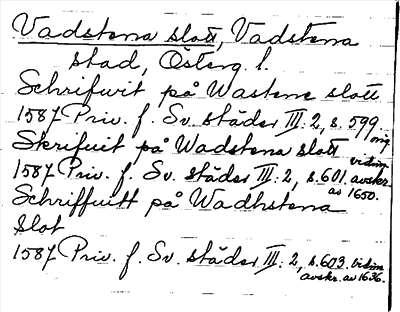 Vadstena slott, Vadstena
stad, Österg. l.
Schrifwit på Wastene slott
1587 Priv. f. Sv. städer III: 2, s. 599. orig.
Skrifuit på Wadstena slott
1587 Priv. f. Sv. städer III: 2, s. 601. vidim. avskr. av 1650.
Schriffuitt på Wadhstena
Slot
1587 Priv. f. Sv. städer III: 2, s. 603. vidim. avskr. av 1636.